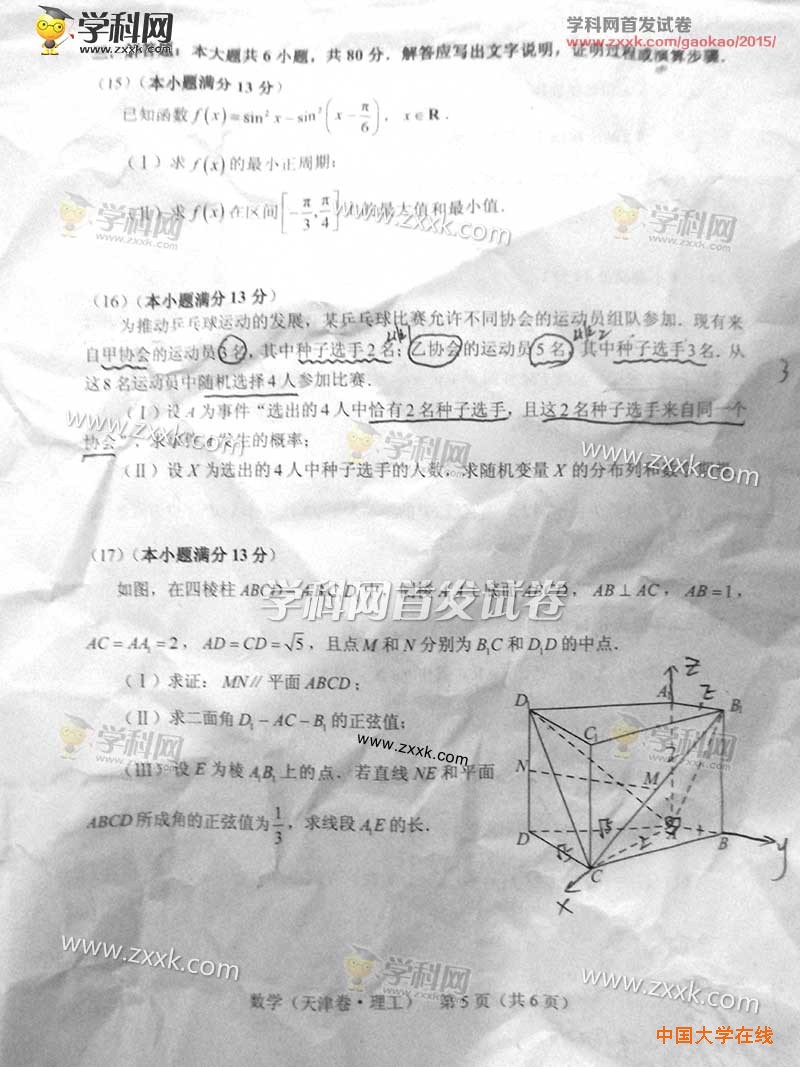 学科网
www.zxxk.com
学科网首发试卷
www.zxxk.com/gaokao/2015/
本大题共 6 小题，共 80 分．解答应写出文字说明，证明过程或演算步骤．
(15)（本小题满分 13 分）
已知函数 f(x)=sin² x−sin²(x−π/6)，x∈R．
(Ⅰ) 求 f(x) 的最小正周期；
(Ⅱ) 求 f(x) 在区间[−π/3, π/4]内的最大值和最小值．
学科网
www.zxxk.com
学科网
www.zxxk.com
(16)（本小题满分 13 分）
为推动乒乓球运动的发展，某乒乓球比赛允许不同协会的运动员组队参加．现有来
自甲协会的运动员 3 名，其中种子选手 2 名；乙协会的运动员 5 名，其中种子选手 3 名．从
3
这 8 名运动员中随机选择 4 人参加比赛．
(Ⅰ) 设 A 为事件“选出的 4 人中恰有 2 名种子选手，且这 2 名种子选手来自同一个
协会”，求事件 A 发生的概率；
www.zxxk.com
学科网
www.zxxk.com
(Ⅱ) 设 X 为选出的 4 人中种子选手的人数，求随机变量 X 的分布列和数学期望．
(17)（本小题满分 13 分）
学科网首发试卷
如图，在四棱柱 ABCD−A₁B₁C₁D₁ 中，AB⊥AC，AB=1，
AC=AA₁=2，AD=CD=√5，且点 M 和 N 分别为 B₁C 和 D₁D 的中点．
(Ⅰ) 求证：MN∥平面 ABCD；
(Ⅱ) 求二面角 D₁−AC−B₁ 的正弦值；
(Ⅲ) 设 E 为棱 A₁B₁ 上的点．若直线 NE 和平面
ABCD 所成角的正弦值为 1/3，求线段 A₁E 的长．
学科网
www.zxxk.com
www.zxxk.com
学科网
www.zxxk.com
z
D₁
A₁
E
B₁
C₁
2
N
M
D
√5
A
1
B
√5
2
C
y
x
www.zxxk.com
学科网
www.zxxk.com
www.zxxk.com
数学（天津卷·理工） 第 5 页（共 6 页）
中国大学在线